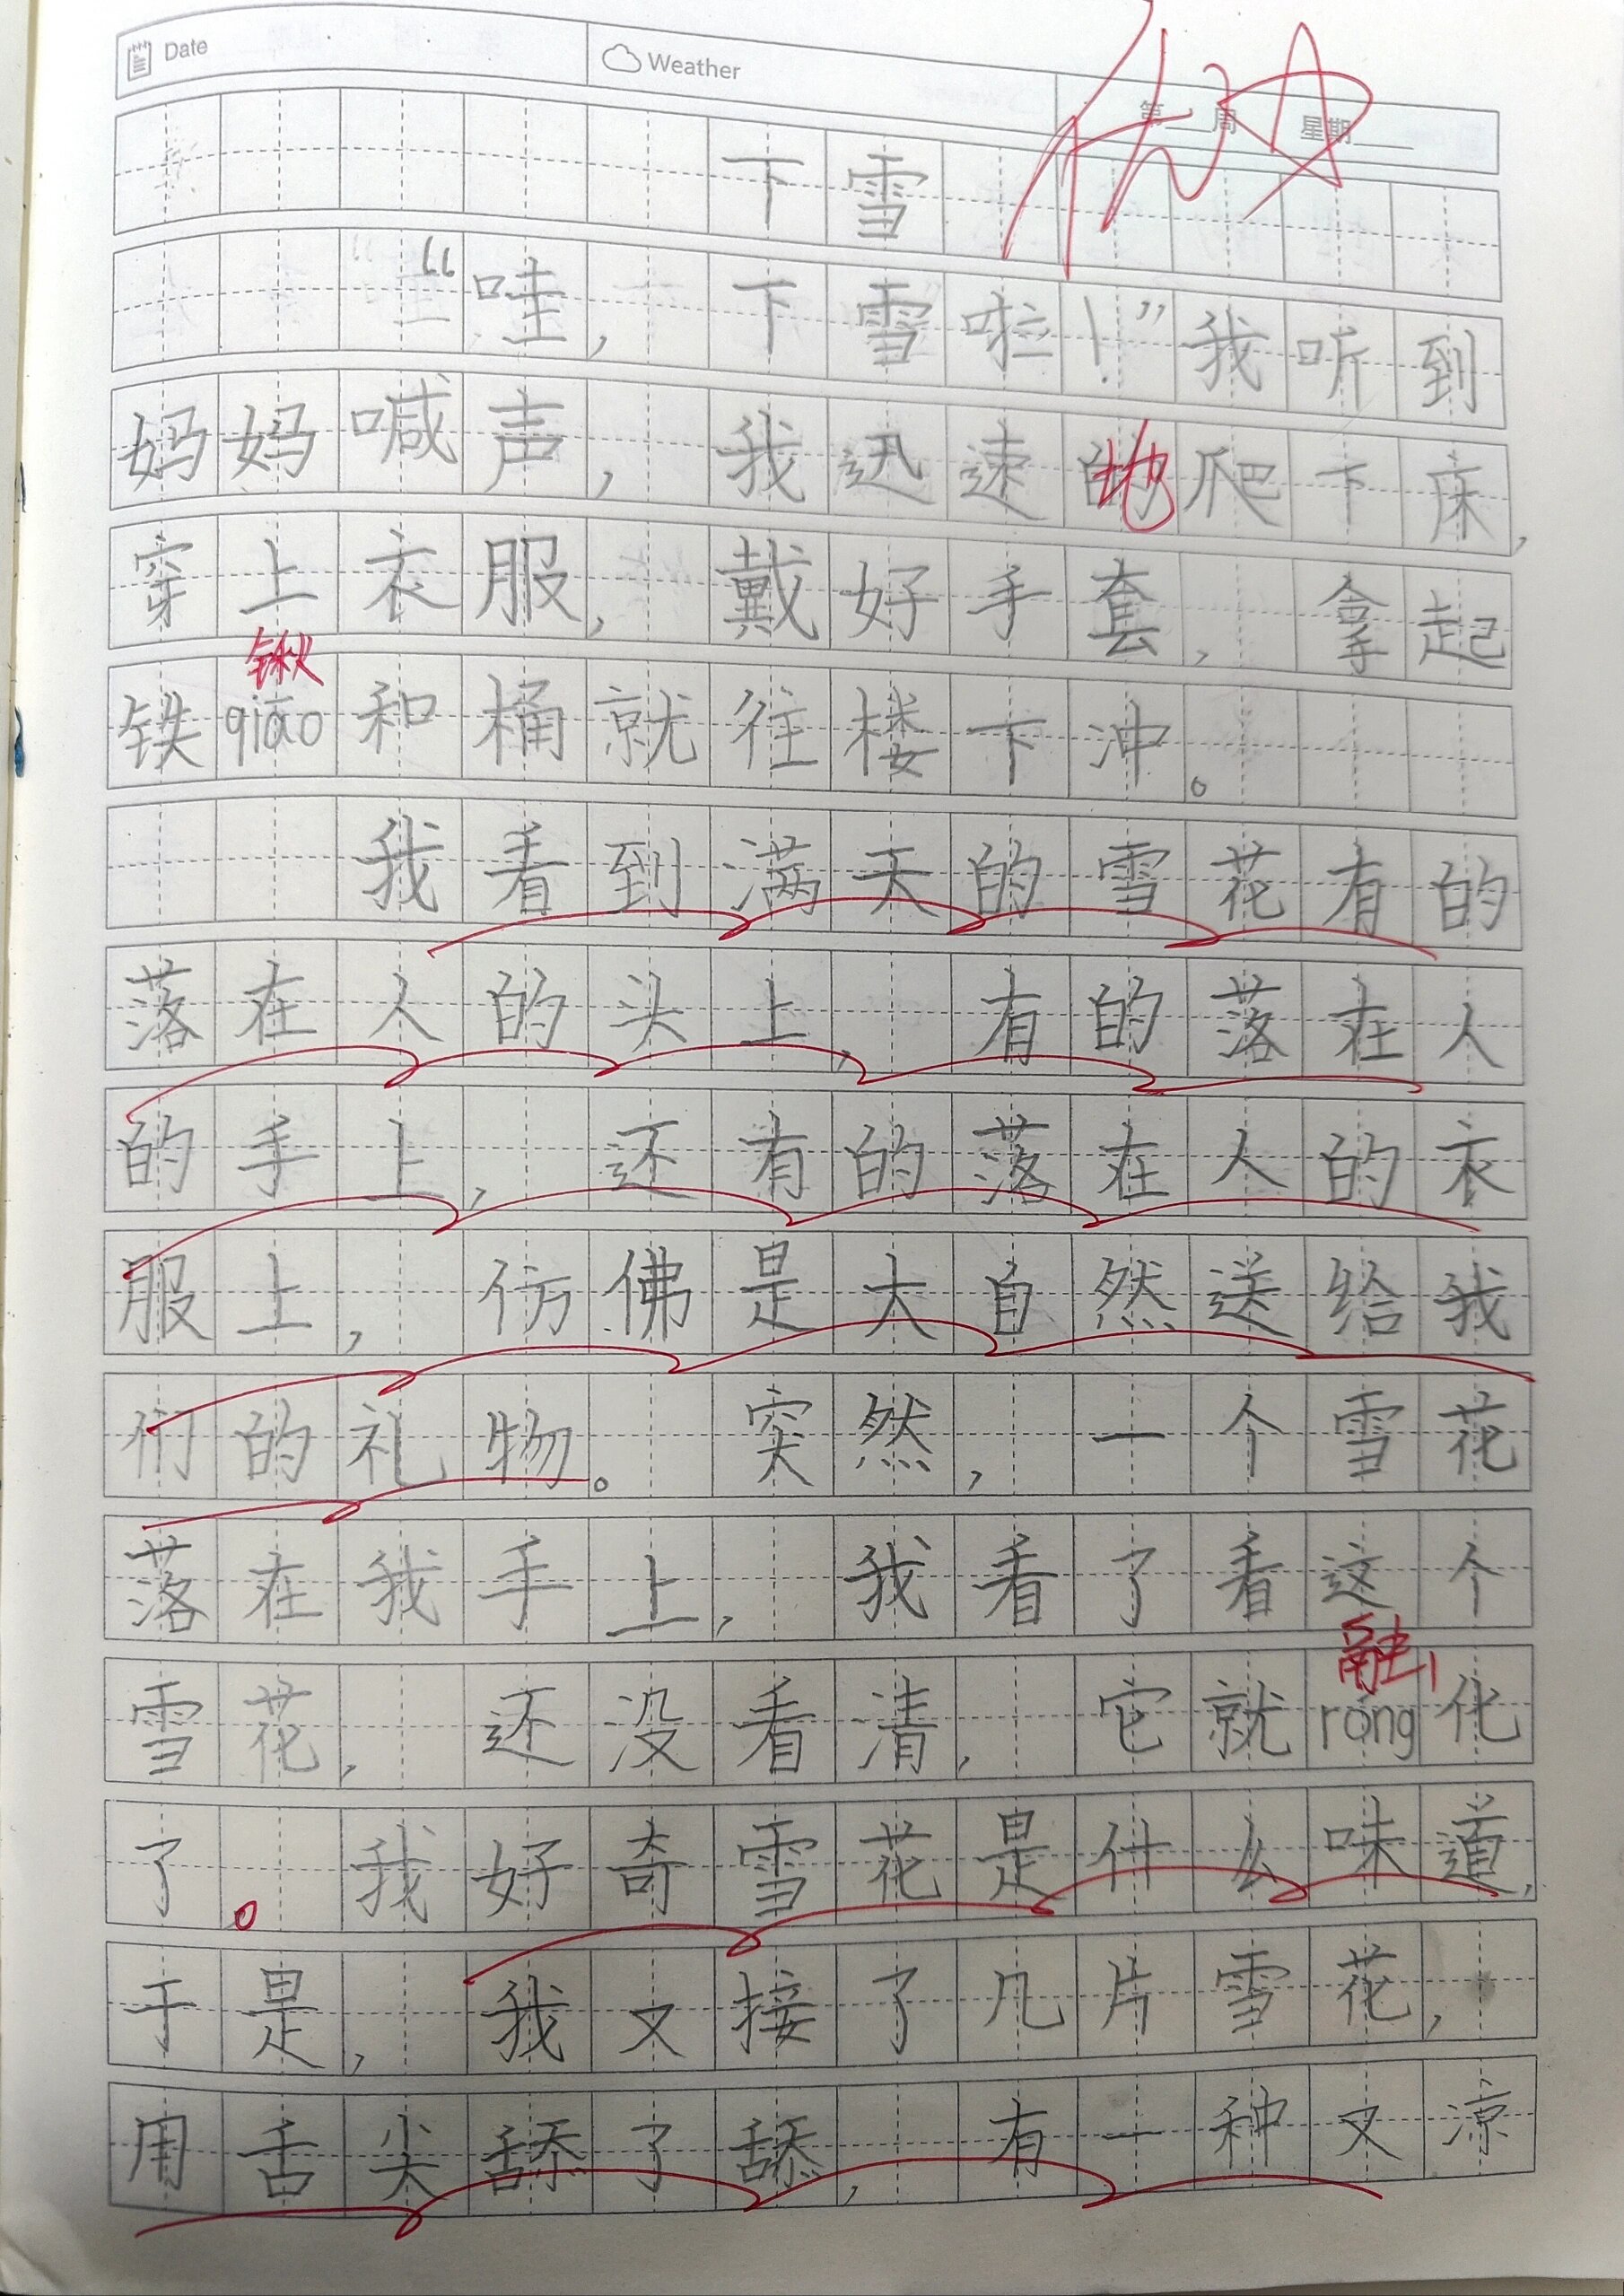 Date Weather 第__周 星期__
优☆
下雪
“哇，下雪啦！”我听到
妈妈喊声，我迅速的地爬下床，
穿上衣服，戴好手套，拿起
锹
铁qiāo和桶就往楼下冲。
我看到满天的雪花有的
落在人的头上，有的落在人
的手上，还有的落在人的衣
服上，仿佛是大自然送给我
们的礼物。突然，一个雪花
落在我手上，我看了看这个
融
雪花，还没看清，它就róng化
了。我好奇雪花是什么味道，
于是，我又接了几片雪花，
用舌尖舔了舔，有一种又凉